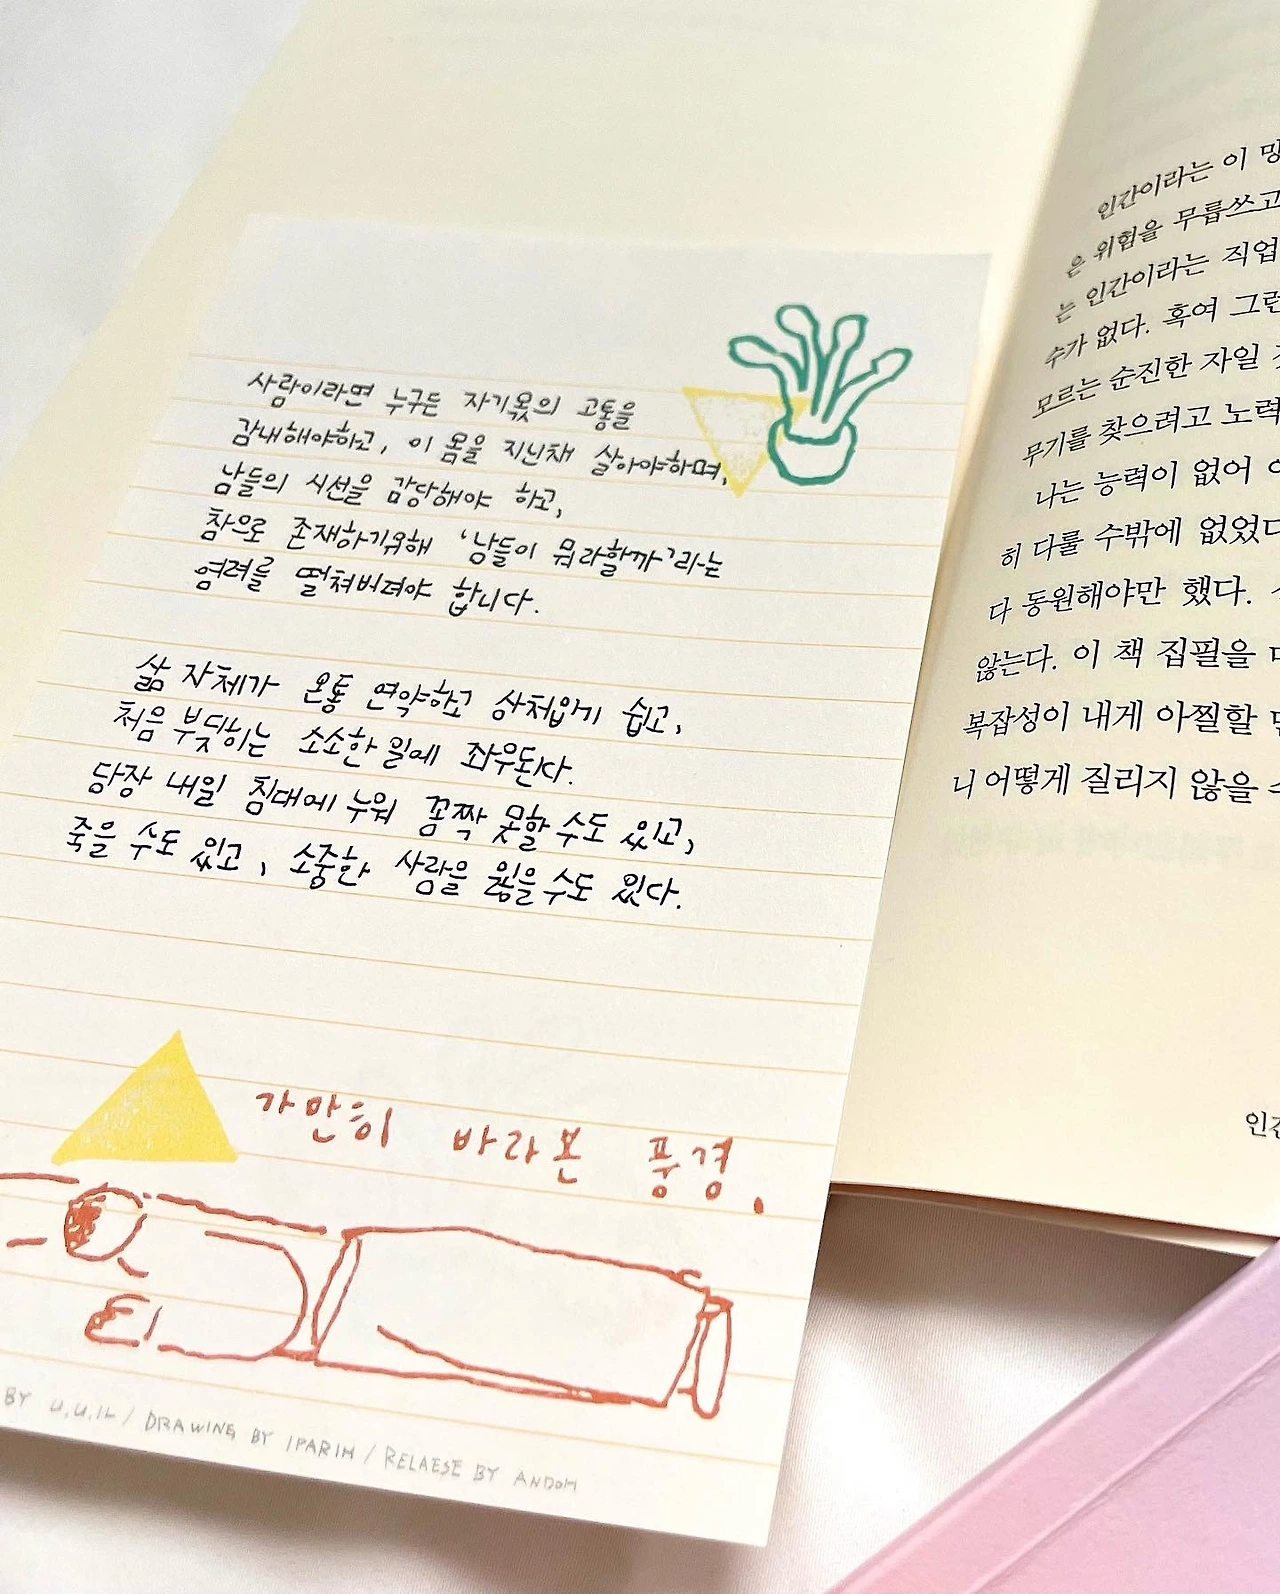 사람이라면 누구든 자기몫의 고통을
감내해야하고, 이 몸을 지닌채 살아야하며,
남들의 시선을 감당해야 하고,
참으로 존재하기위해 '남들이 뭐라할까'라는
염려를 떨쳐버려야 합니다.
삶 자체가 온통 연약하고 상처입기 쉽고,
처음 부딪히는 소소한 일에 좌우된다.
당장 내일 침대에 누워 꼼짝 못할 수도 있고,
죽을 수도 있고, 소중한 사람을 잃을 수도 있다.
가만히 바라본 풍경.
BY U.U.IL / DRAWING BY IPARIH / RELAESE BY ANDOH
인간이라는 이
은 위험을 무릅쓰고
는 인간이라는 직업
수가 없다. 혹여 그런
모르는 순진한 자일
무기를 찾으려고 노력
나는 능력이 없어
히 다룰 수밖에 없었다
다 동원해야만 했다.
않는다. 이 책 집필을
복잡성이 내게 아찔할
니 어떻게 질리지 않을
인간